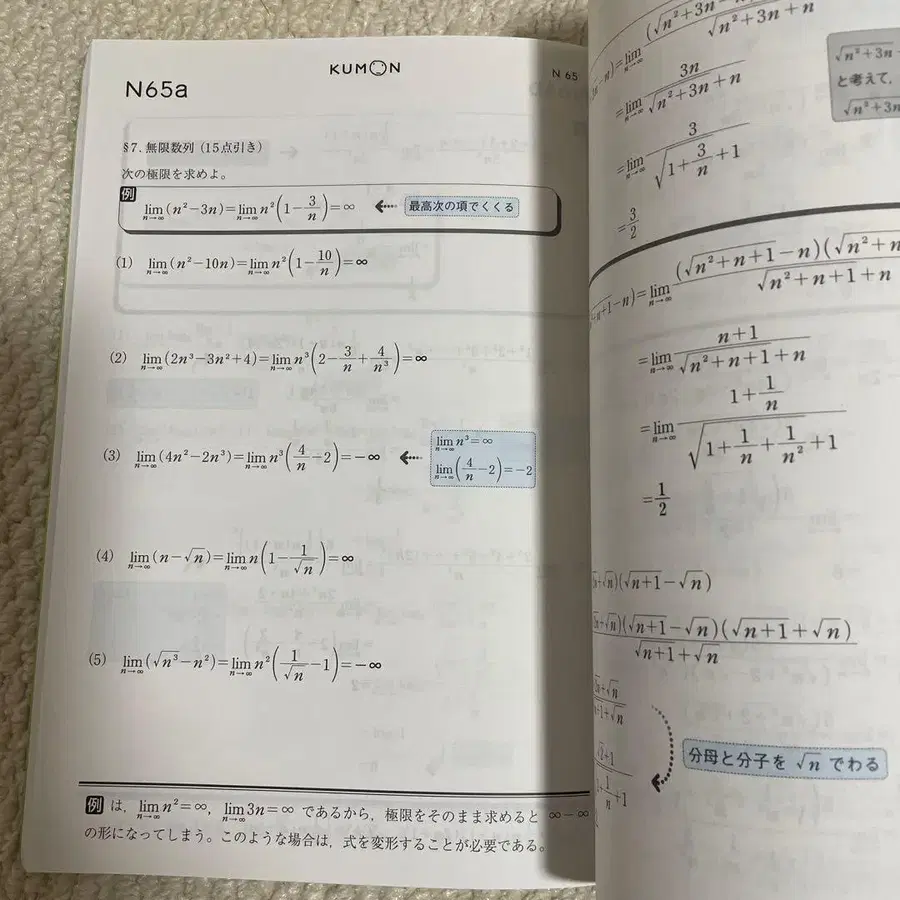 KUMON
N65a
N 65
§7. 無限数列 (15点引き)
次の極限を求めよ。
例
lim n→∞ (n²−3n)=lim n→∞ n²(1−3/n)=∞ 最高次の項でくくる
(1) lim n→∞ (n²−10n)=lim n→∞ n²(1−10/n)=∞
(2) lim n→∞ (2n³−3n²+4)=lim n→∞ n³(2−3/n+4/n³)=∞
(3) lim n→∞ (4n²−2n³)=lim n→∞ n³(4/n−2)=−∞
lim n→∞ n³=∞
lim n→∞ (4/n−2)=−2
(4) lim n→∞ (n−√n)=lim n→∞ n(1−1/√n)=∞
(5) lim n→∞ (√n³−n²)=lim n→∞ n²(1/√n−1)=−∞
例 は, lim n→∞ n²=∞, lim n→∞ 3n=∞ であるから, 極限をそのまま求めると ∞−∞
の形になってしまう。このような場合は, 式を変形することが必要である。
√n²+3n+n
=lim n→∞ 3n/(√n²+3n+n)
=lim n→∞ 3/(√1+3/n+1)
=3/2
√n²+3n
と考えて,
√n²+3n
−n)=lim n→∞ (√n²+n+1−n)(√n²+n/(√n²+n+1+n
=lim n→∞ (n+1)/(√n²+n+1+n)
=lim n→∞ (1+1/n)/(√1+1/n+1/n²+1)
=1/2
√n)(√n+1−√n)
√n)(√n+1−√n)(√n+1+√n)/(√n+1+√n)
分母と分子を √n でわる